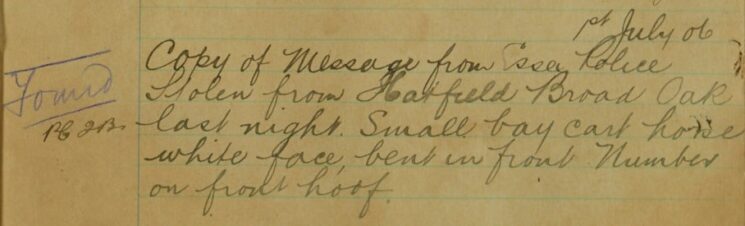 1st July 06
Copy of Message from Essex Police
Found
Stolen from Hatfield Broad Oak
last night. Small bay cart horse
white face, bent in front Number
on front hoof.